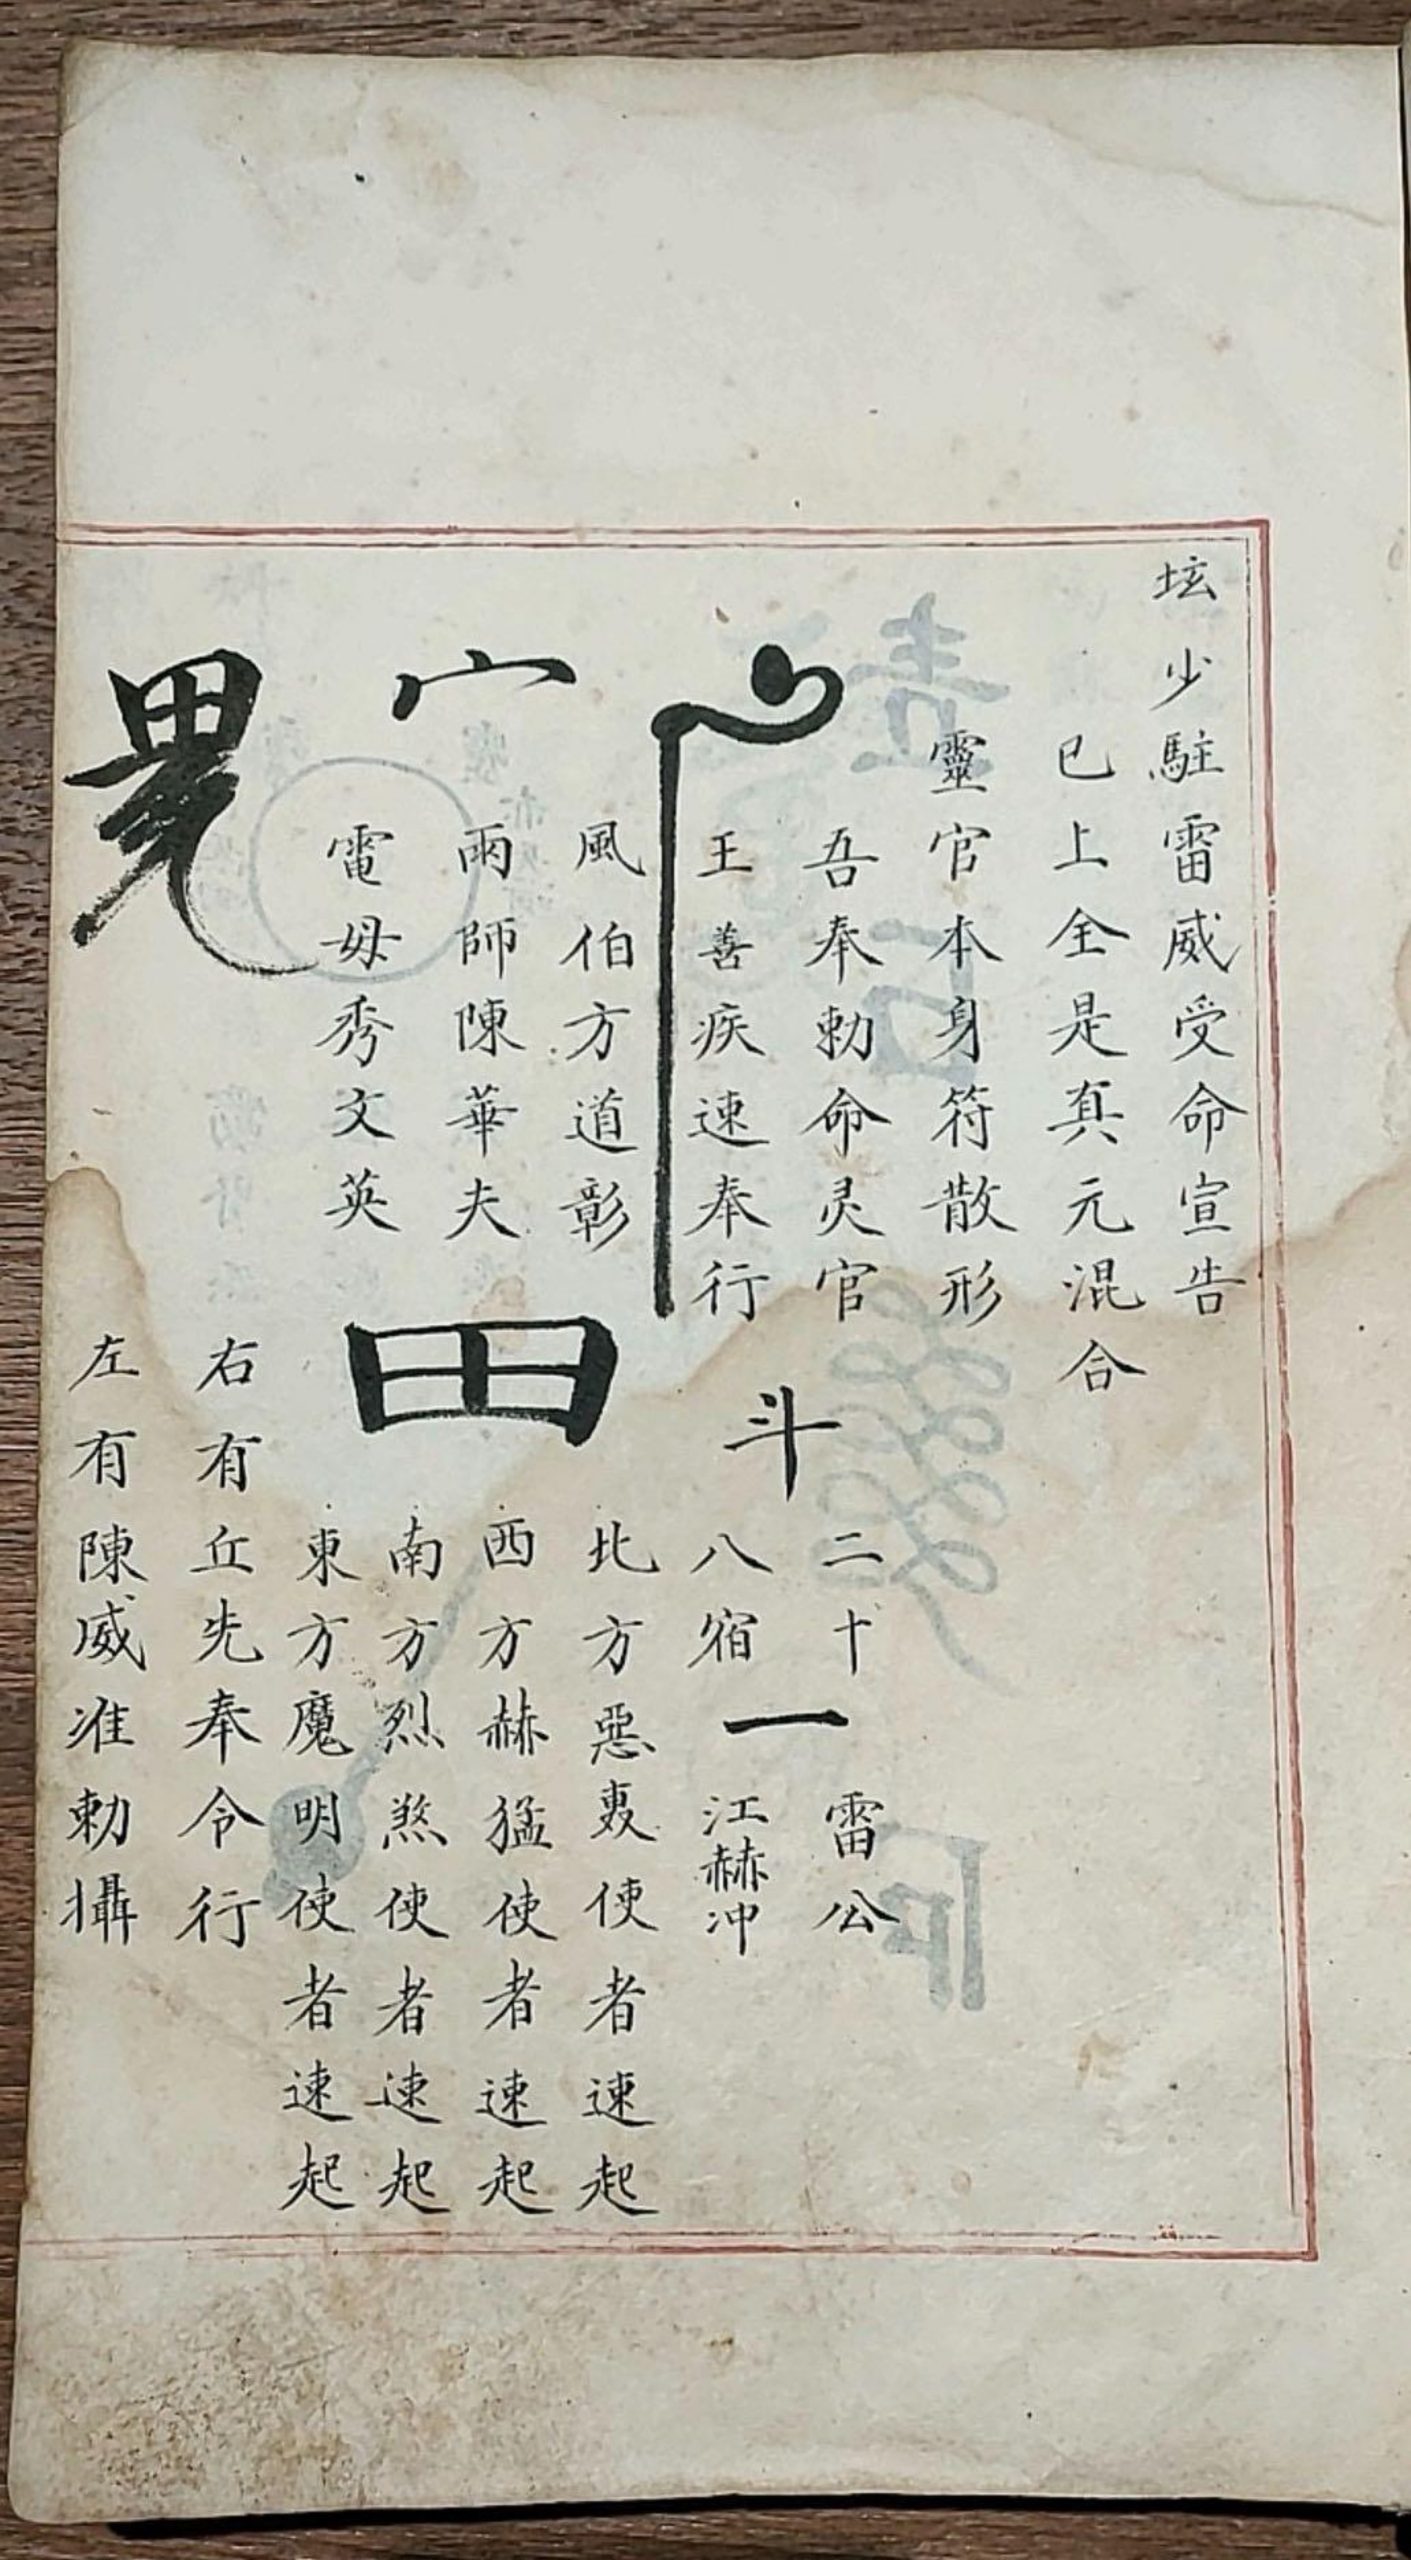 坛少駐雷威受命宣告
已上全是真元混合
靈官本身符散形
吾奉勅命灵官
王善疾速奉行
風伯方道彰
雨師陳華夫
電母秀文英
斗
二十
八宿
一
雷公
江赫冲
田
北方惡轰使者速起
西方赫猛使者速起
南方烈煞使者速起
東方魔明使者速起
右有丘先奉令行
左有陳威准勅攝